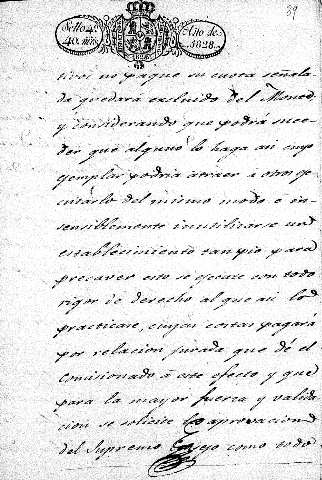 39
Sello 4º
40. mrs.
Año de
1828.
tivos no pague su cuota señala
da quedará excluido del Monte,
y considerando que podrá suce
der que alguno lo haga asi cuyo
ejemplar podria atraer á otros eje
cutarlo del mismo modo é in
sensiblemente inutilizarse un
establecimiento tan pio para
precaver esto se ejecute con todo
rigor de derecho al que asi lo
practicare, cuyas costas pagará
por relacion jurada que dé el
comisionado á este efecto y que
para la mayor fuerza y valida
cion se solicite la aprovacion
del Supremo Consejo como todo